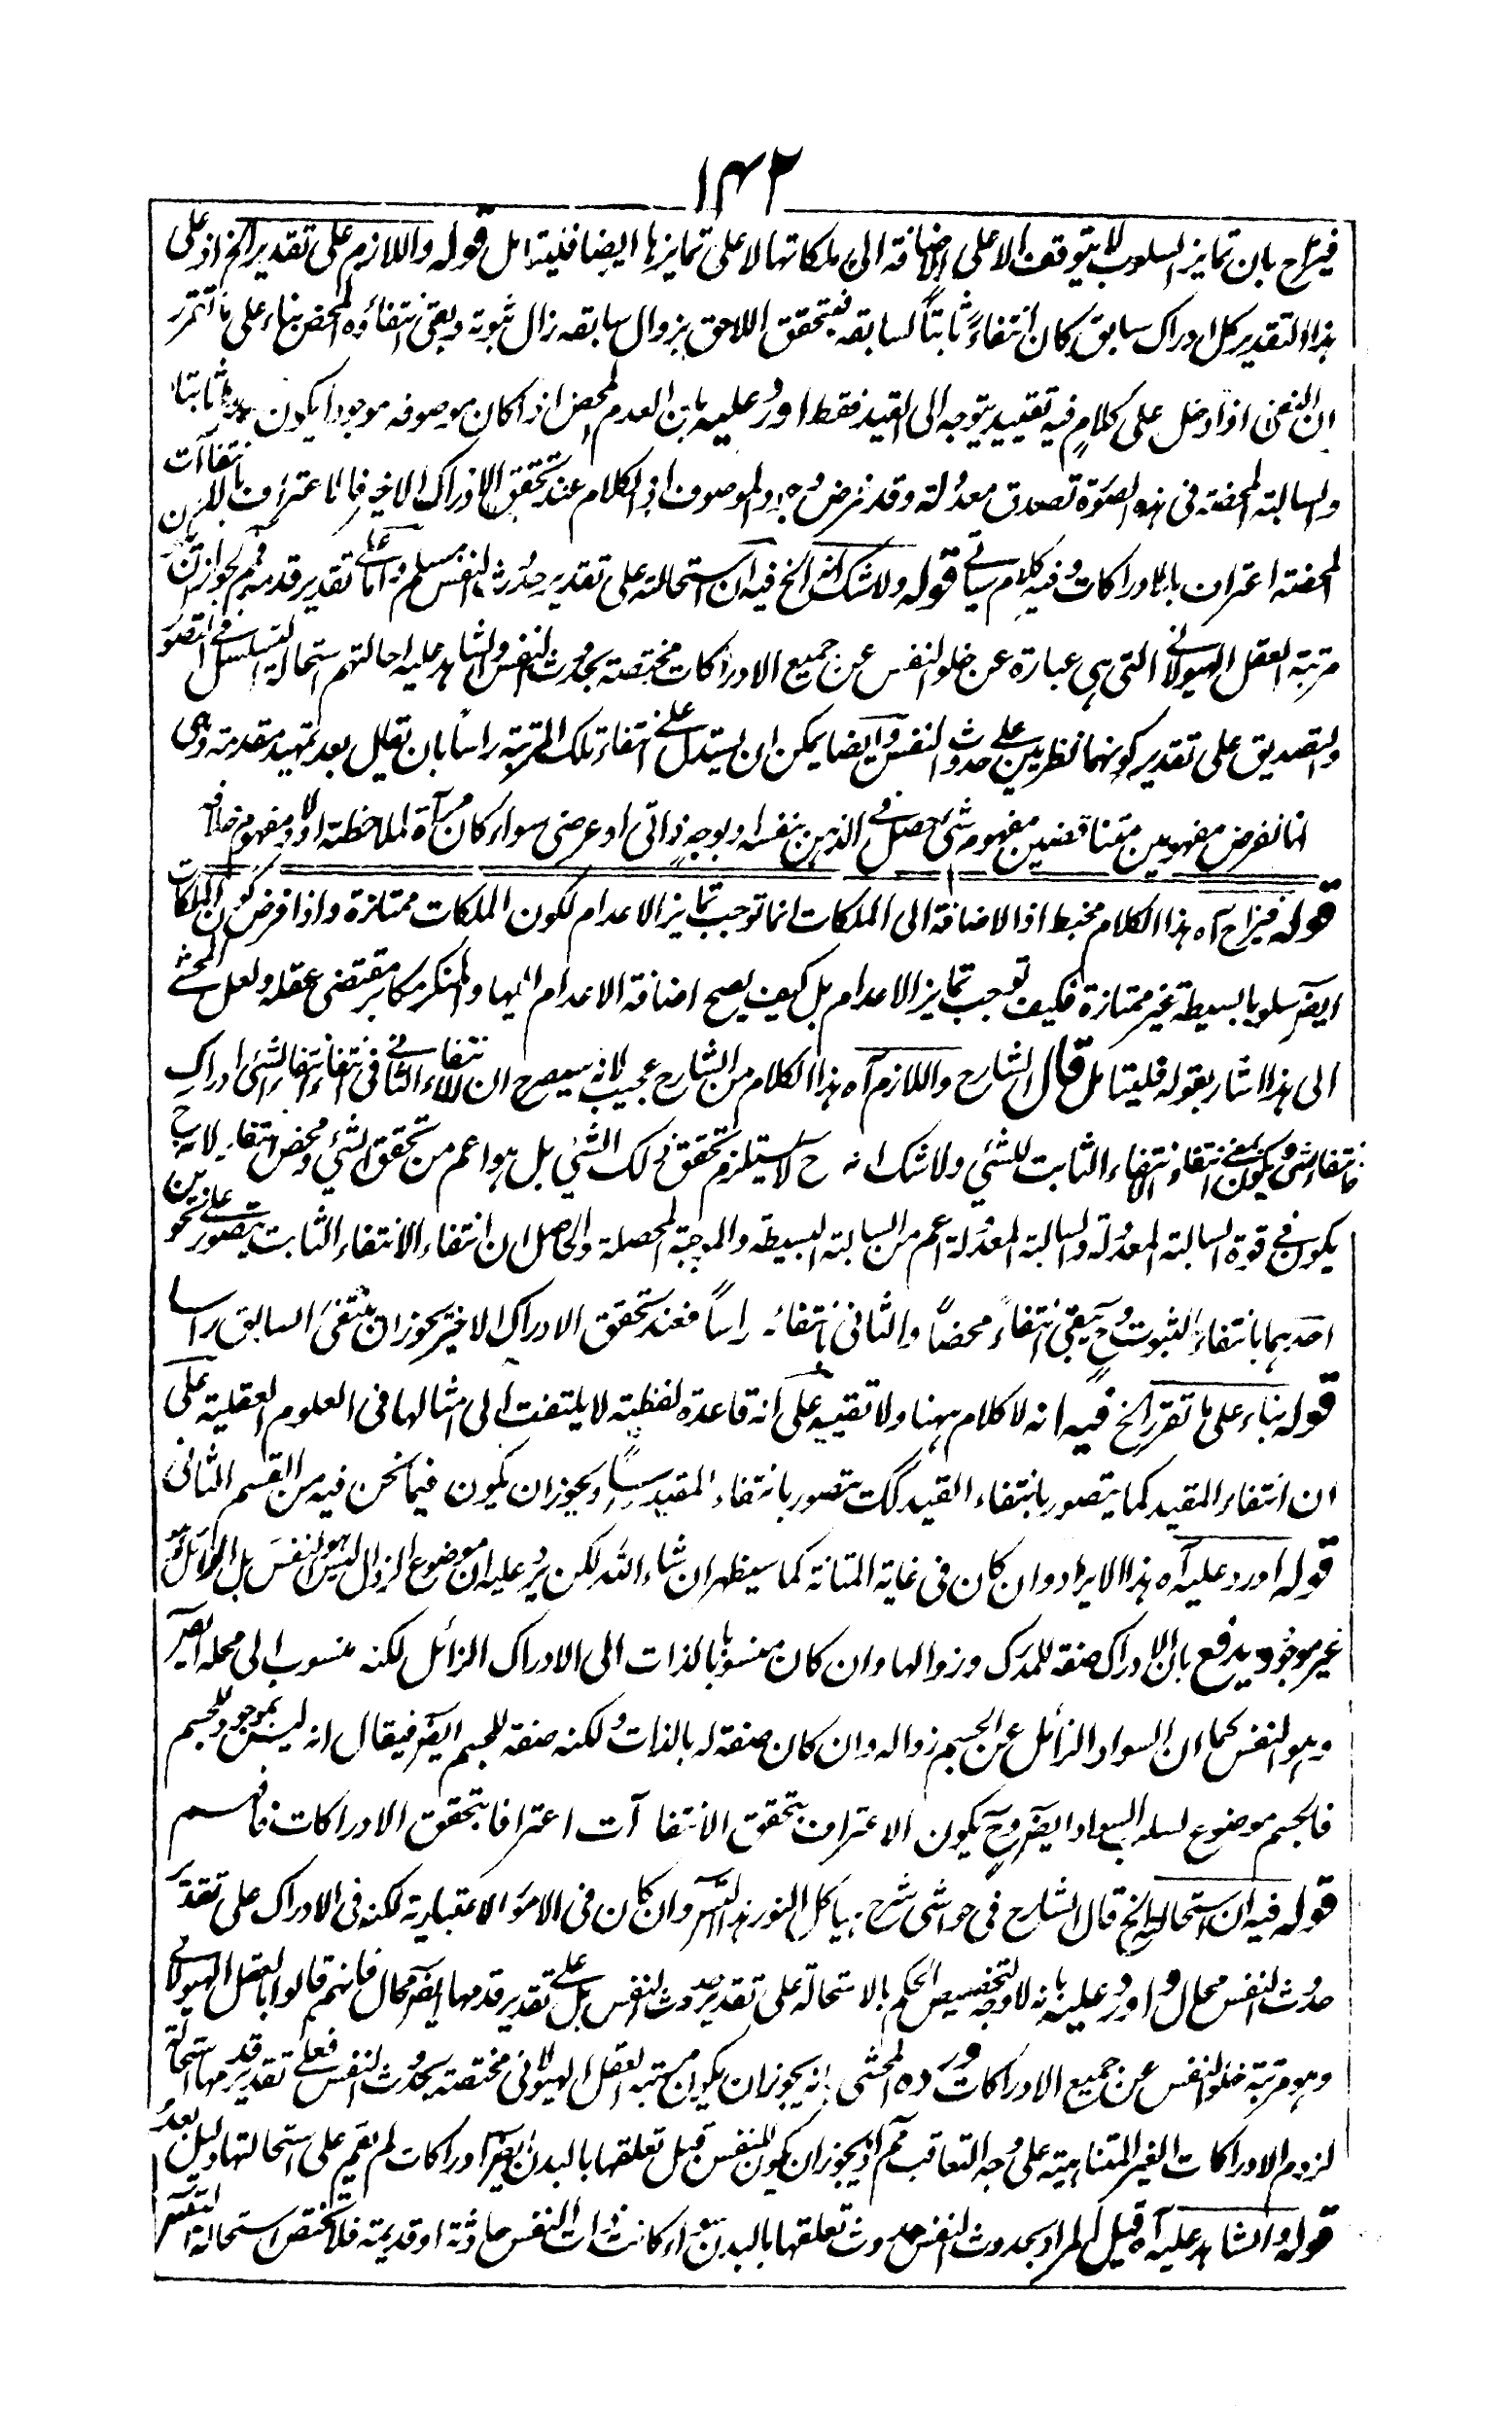 ١٤٢
فيزاح بان تمايز السلوب لا يتوقف الا على الاضافة الى ملكاتها لا على تمايزها ايضا فليتامل قوله واللازم على تقدير الخ اذ على
هذا التقدير كل ادراك سابق كان انتفاءً ثابتاً لسابقه فبتحقق اللاحق بزوال سابقه زال ثبوته وبقى انتفاؤه المحض بناء على ما تقرر
ان النفى اذا دخل على كلامٍ فيه تقييد يتوجه الى القيد فقط اورد عليه بان العدم المحض اذا كان موصوفه موجودا يكون ثابتا
والسالبة المحضة فى هذه الصورة تصدق معدولة وقد فرض وجود الموصوف اذ الكلام عند تحقق الادراك الاخير فالاعتراف بالانتفاآت
المحضة اعتراف بالادراكات وفيه كلام سيأتى قوله ولا شك انه الخ فيه ان استحالته على تقدير حدوث النفس مسلم واما على تقدير قدمها فمم لجواز ان
مرتبة العقل الهيولانى التى هى عبارة عن خلو النفس عن جميع الادراكات مختصة بحدوث النفس والشاهد عليه احالتهم استحالة التسلسل فى التصور
والتصديق على تقدير كونهما نظريين على حدوث النفس وايضا يمكن ان يستدل على انتفاء تلك المرتبة راسا بان نقول بعد تمهيد مقدمة وهى
انا نفرض مفهومين متناقضين مفهوم شئ حصل فى الذهن بنفسه او بوجهٍ ذاتى او عرضى سواء كان مرآة لملاحظته اولا ومفهوم خلافه
قوله فيزاح آه هذا الكلام مخبط اذ الاضافة الى الملكات انما توجب تمايز الاعدام لكون الملكات ممتازة واذا فرض كون الملكات
ايضا سلوبا بسيطة غير ممتازة فكيف توجب تمايز الاعدام بل كيف يصح اضافة الاعدام اليها والمنكر مكابر مقتضى عقله ولعل المحشى
الى هذا اشار بقوله فليتامل قال الشارح واللازم آه هذا الكلام من الشارح عجيب لانه سيصرح ان الانتفاء الثانى فى انتفاء انتفاء الشئ ادراك
فانتفاء شئ ويكون بمعنى انتفاء الانتفاء الثابت للشئ ولا شك انه ح لا يستلزم تحقق ذلك الشئ بل هو اعم من تحقق الشئ ومحض انتفائه لانه ح
يكون فى قوة السالبة المعدولة والسالبة المعدولة اعم من السالبة البسيطة والموجبة المحصلة والحاصل ان انتفاء الانتفاء الثابت يتصور على نحوين
احدهما بانتفاء الثبوت وح يبقى انتفاءً محضاً والثانى بانتفائه راساً فعند تحقق الادراك الاخير يجوز ان ينتفى السابق راسا
قوله بناء على ما تقرر الخ فيه انه لا كلام ههنا ولا تقييد على انه قاعدة لفظية لا يلتفت الى امثالها فى العلوم العقلية على
ان انتفاء المقيد كما يتصور بانتفاء القيد كك يتصور بانتفاء المقيد راسا ويجوز ان يكون فيما نحن فيه من القسم الثانى
قوله اورد عليه آه هذا الايراد وان كان فى غاية المتانة كما سيظهر ان شاء الله لكن يرد عليه ان موضوع الزوال ليس هو النفس بل الزائل وهو
غير موجود ويدفع بان الادراك صفة للمدرك وزوالها وان كان منسوبا بالذات الى الادراك الزائل لكنه منسوب الى محله ايضا
وهو النفس كما ان السواد الزائل عن الجسم زواله وان كان صفة له بالذات ولكنه صفة للجسم ايضا فيقال انه ليس بموجود للجسم
فالجسم موضوع لسلب السواد ايضا وح يكون الاعتراف بتحقق الانتفاآت اعترافا بتحقق الادراكات فافهم
قوله فيه ان استحالته الخ قال الشارح فى حواشى شرح هياكل النور هذا التسـ وان كان فى الامور الاعتبارية لكنه فى الادراك على تقدير
حدوث النفس محال واورد عليه بانه لا وجه لتخصيص الحكم بالاستحالة على تقدير حدوث النفس بل على تقدير قدمها ايضا محال فانهم قالوا بالعقل الهيولانى
وهو مرتبة خلو النفس عن جميع الادراكات ورده المحشى بانه يجوز ان يكون مرتبة العقل الهيولانى مختصة بحدوث النفس فعلى تقدير قدمها استحالة
لزوم الادراكات الغير المتناهية على وجه التعاقب مم اذ يجوز ان يكون للنفس قبل تعلقها بالبدن ايضا ادراكات لم يقم على استحالتها دليل بعد
قوله والشاهد عليه آه قيل المراد بحدوث النفس حدوث تعلقها بالبدن سواء كانت ذات النفس حادثة او قديمة فلا تختص استحالة التسـ